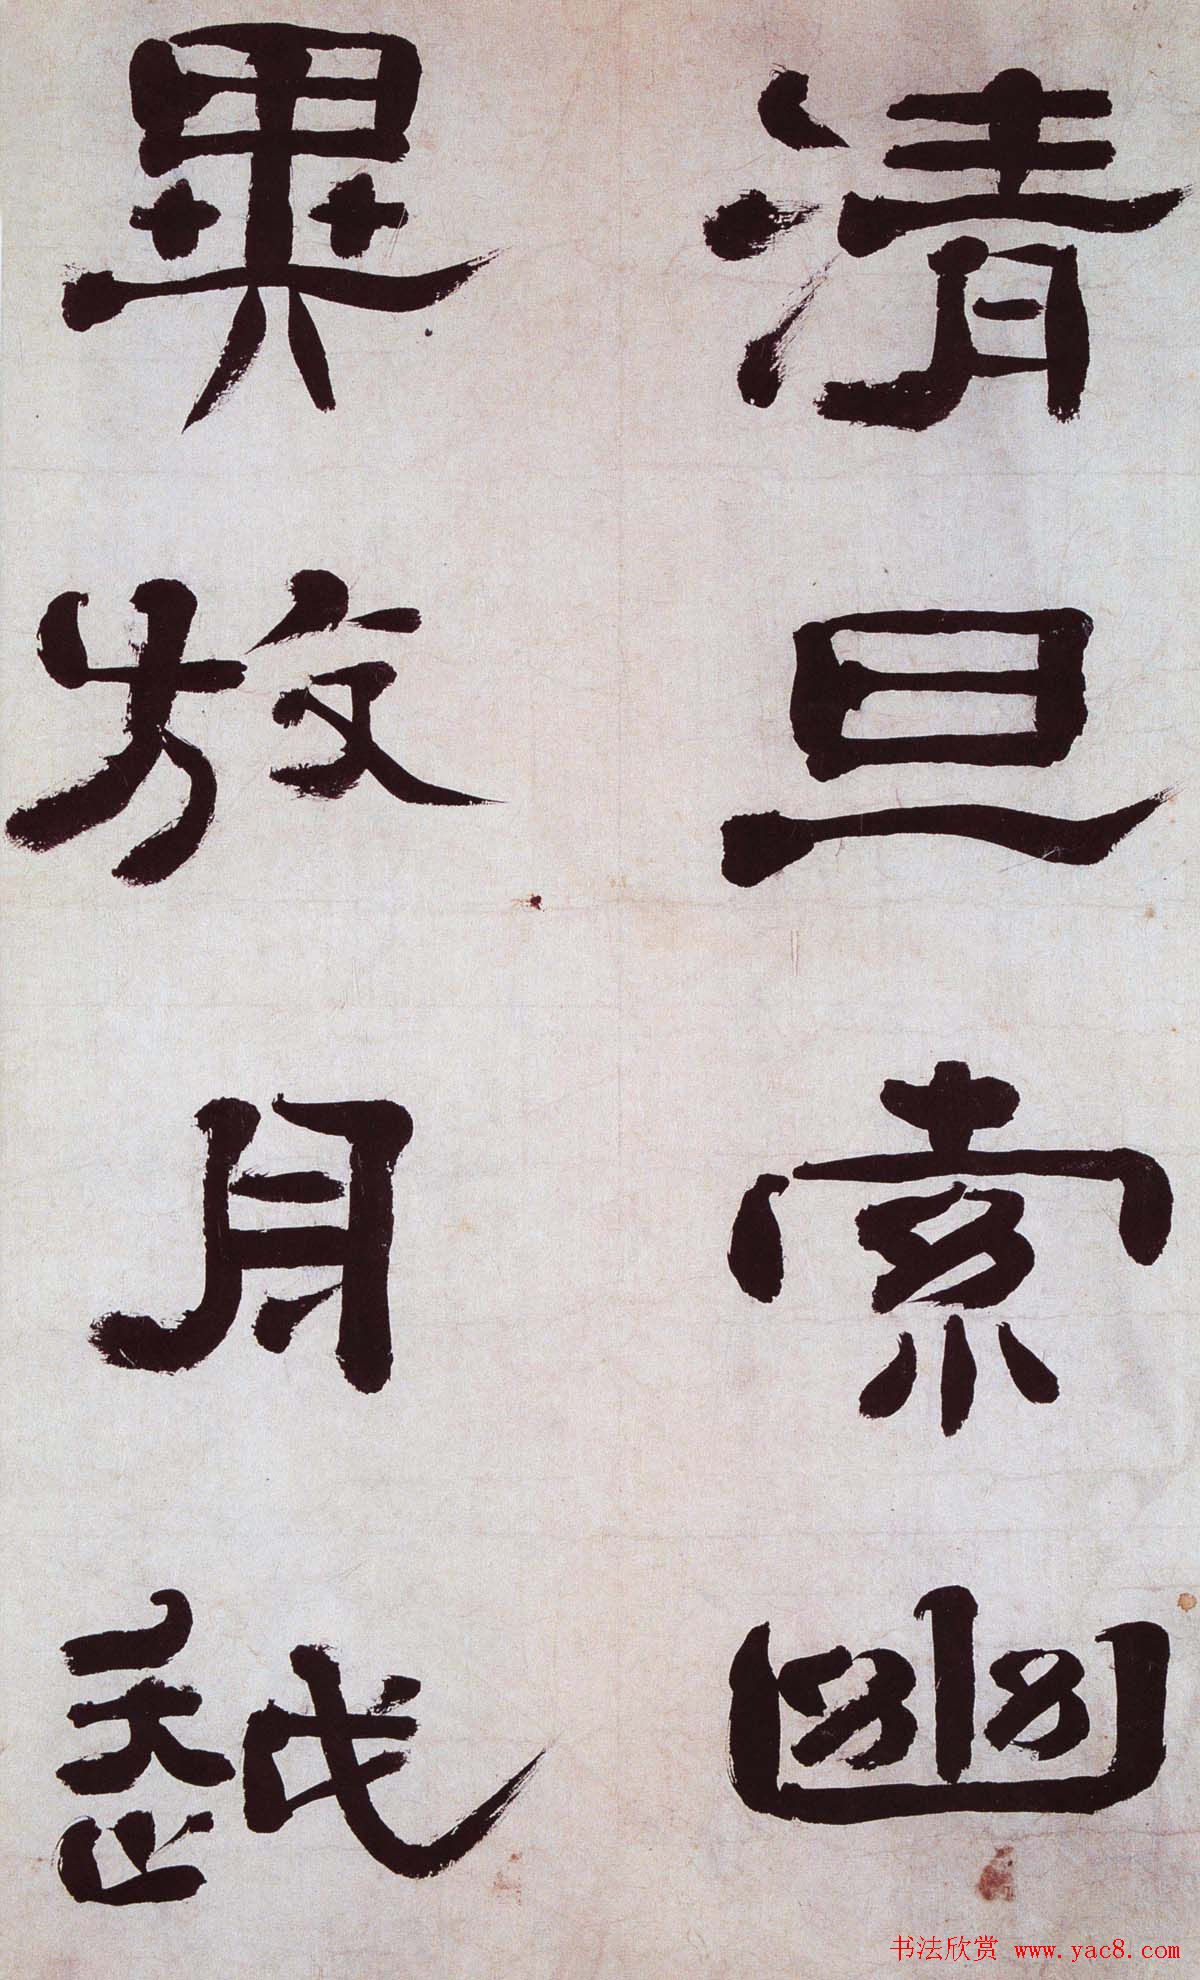 清旦索幽
異放舟越
书法欣赏 www.yac8.com